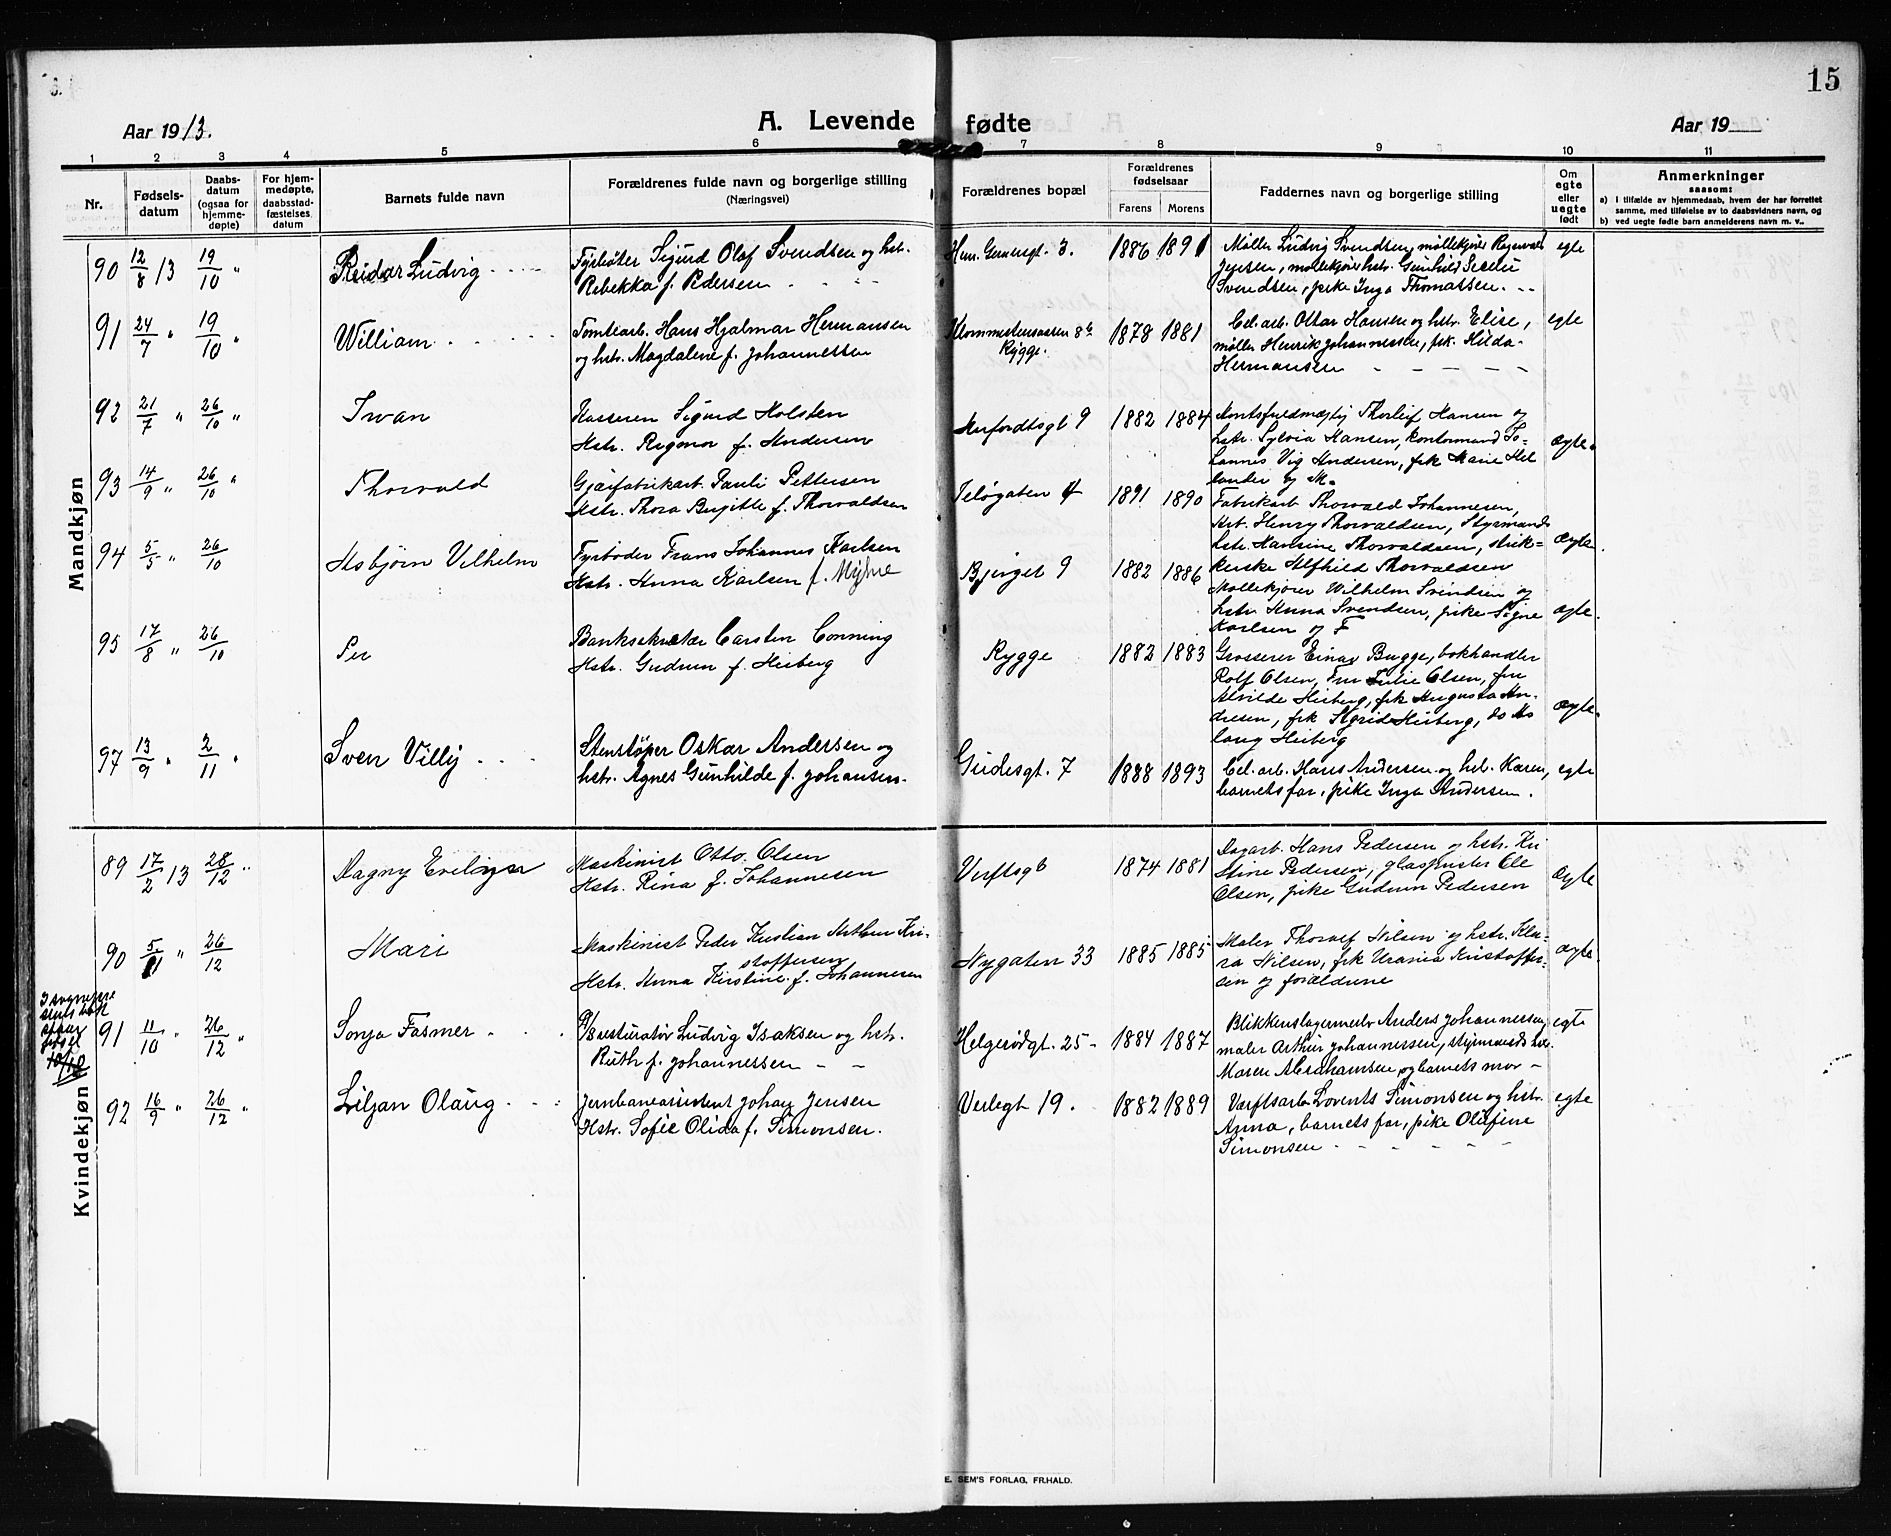 15
Aar 1913.
A. Levende fødte
Aar 19
1 2 3 4 5 6 7 8 9 10 11
Nr.
Fødsels-
datum
Daabs-
datum
(ogsaa for
hjemme-
døpte)
For hjem-
medøpte,
daabsstad-
fæstelses
datum
Barnets fulde navn
Forældrenes fulde navn og borgerlige stilling
(Næringsvei)
Forældrenes bopæl
Forældrenes
fødselsaar
Farens Morens
Faddernes navn og borgerlige stilling
Om
egte
eller
uegte
født
Anmerkninger
saasom:
a) i tilfælde av hjemmedaab, hvem der har forrettet
samme, med tilføielse av to daabsvidners navn, og
b) ved uegte fødte barn anmelderens navn m. v..
Mandkjøn
90 12/8 13 19/10 " Reidar Ludvig
Fyrbøter Sigurd Olaf Svendsen og hst.
Rebekka f. Pedersen
3. 1886 1891
Møller Ludvig Svendsen, møllekjører
Jensen, møllekjørerhstr. Gunhild
Svendsen, pike Inga Thomassen.
egte
91 24/7 " 19/10 " William
Tomtearb. Hans Hjalmar Hermansen
og hstr. Magdalene f. Johannessen
Rygge.
1878 1881
Cel. arb. Ottar Hansen og hstr. Elise,
møller Henrik Johannessen, frk. Hilda
Hermansen
egte
92 21/7 " 26/10 " Iwan
Kasserer Sigurd Holsten
Hstr. Ragnor f. Andersen
9 1882 1884
Kontsfuldmægtig Thorleif Hansen og
hstr. Sylvia Hansen, kontormand Jo-
hannes Vig Andersen, frk Marie Hel
lander og M.
ægte.
93 14/9 " 26/10 " Thorvald
Gjærfabrikarb. Pauli Pettersen
Hstr. Thora Birgitte f. Thorvaldsen
Jeløgaten 4 1891 1890
Fabrikarb Thorvald Johannesen,
Arb. Henry Thorvaldsen, Styrmands
hstr. Hansine Thorvaldsen, strik-
kerske Alfhild Thorvaldsen
ægte.
94 5/5 " 26/10 Asbjørn Vilhelm
Fyrbøder Frans Johannes Karlsen
Hstr. Anna Karlsen f. Myhre
Bjerget 9 1882 1886
Møllekjører Wilhelm Svendsen og
hstr Anna Svendsen, pike Signe
Karlsen og F
ægte.
95 17/8 " 26/10 Per
Banksekretær Carsten Conning
Hstr. Gudrun f. Heiberg
Rygge 1882 1883
Grosserer Einar Bugge, bokhandler
Rolf Olsen, Fru Julie Olsen, fru
Alvilde Heiberg, frk Augusta An-
dresen, frk Sigrid Heiberg, do As
laug Heiberg
ægte.
97 13/9 " 2/11 " Sven Villy
Stenstøper Oskar Andersen og
hstr. Agnes Gunhilde f. Johansen.
Gudesgt. 7 1888 1893
Cel. arb. Hans Andersen og hst. Karen,
barnets far, pike Inga Andersen.
egte
Kvindekjøn
89 17/2 13 28/12 " Dagny Evelyn
Maskinist Otto Olsen
Hstr. Rina f. Johannesen
Verftsg 6 1874 1881
Dagarb. Hans Pedersen og hstr. Kri
stine Pedersen, glaspuster Ole
Olsen, pike Gudrun Pedersen
ægte
90 " 26/12 Mari
Maskinist Peder Kristian Arthur Kri-
stoffersen
Hstr. Anna Kirstine f. Johannesen
Nygaten 33 1885 1885
Maler Thorleif Nilsen og hstr. Kla-
ra Nilsen, frk Urania Kristoffer-
sen og forældrene
ægte.
91 11/10 " 26/12 " Sonja Fasmer
Ludvig Isaksen og hstr.
Ruth f. Johannessen
Helgerødgt. 25 1884 1887
Blikkenslagermester Anders Johannessen,
maler Arthur Johannessen, styrmands hstr.
Maren Abrahamsen og barnets mor
egte
92 16/9 " 26/12 " Liljan Olaug
Jernbaneassistent Johan Jensen
Hstr. Sofie Olida f. Simonsen.
Verlegt 19. 1882 1889
Værftsarb. Lorents Simonsen og hstr.
Anna, barnets far, pike Olufine
Simonsen
egte
E. SEM'S FORLAG, FR.HALD.